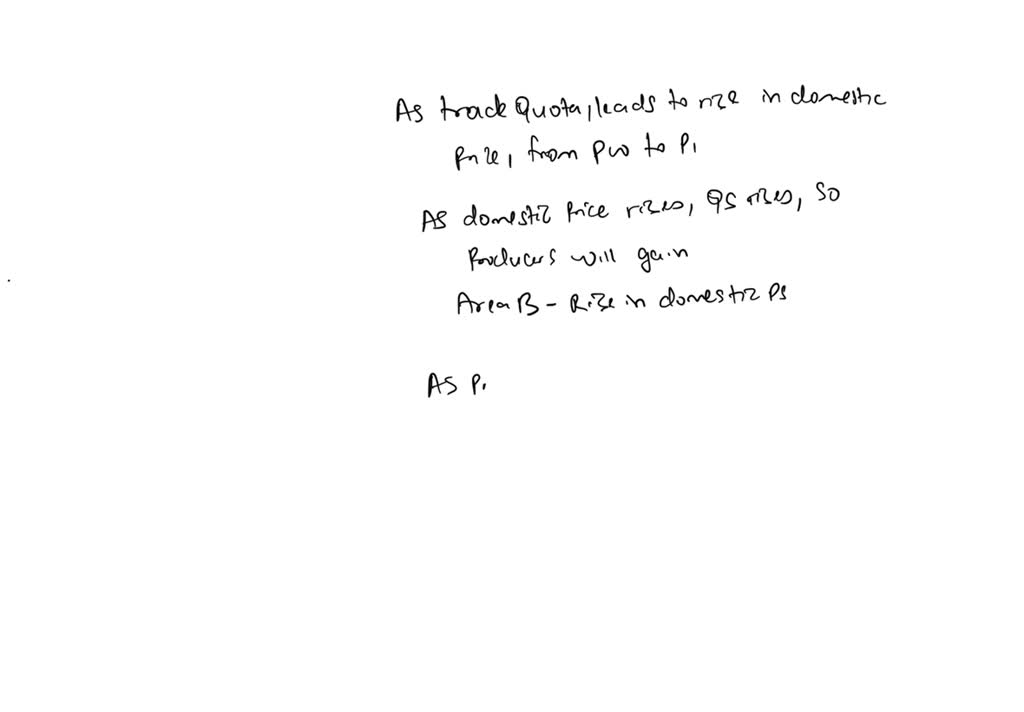 As trade Quota, leads to rize in domestic
Price, from Pw to P1
As domestic Price rises, QS rises, So
Producers will gain
Area B - Rise in domestic PS
As P1